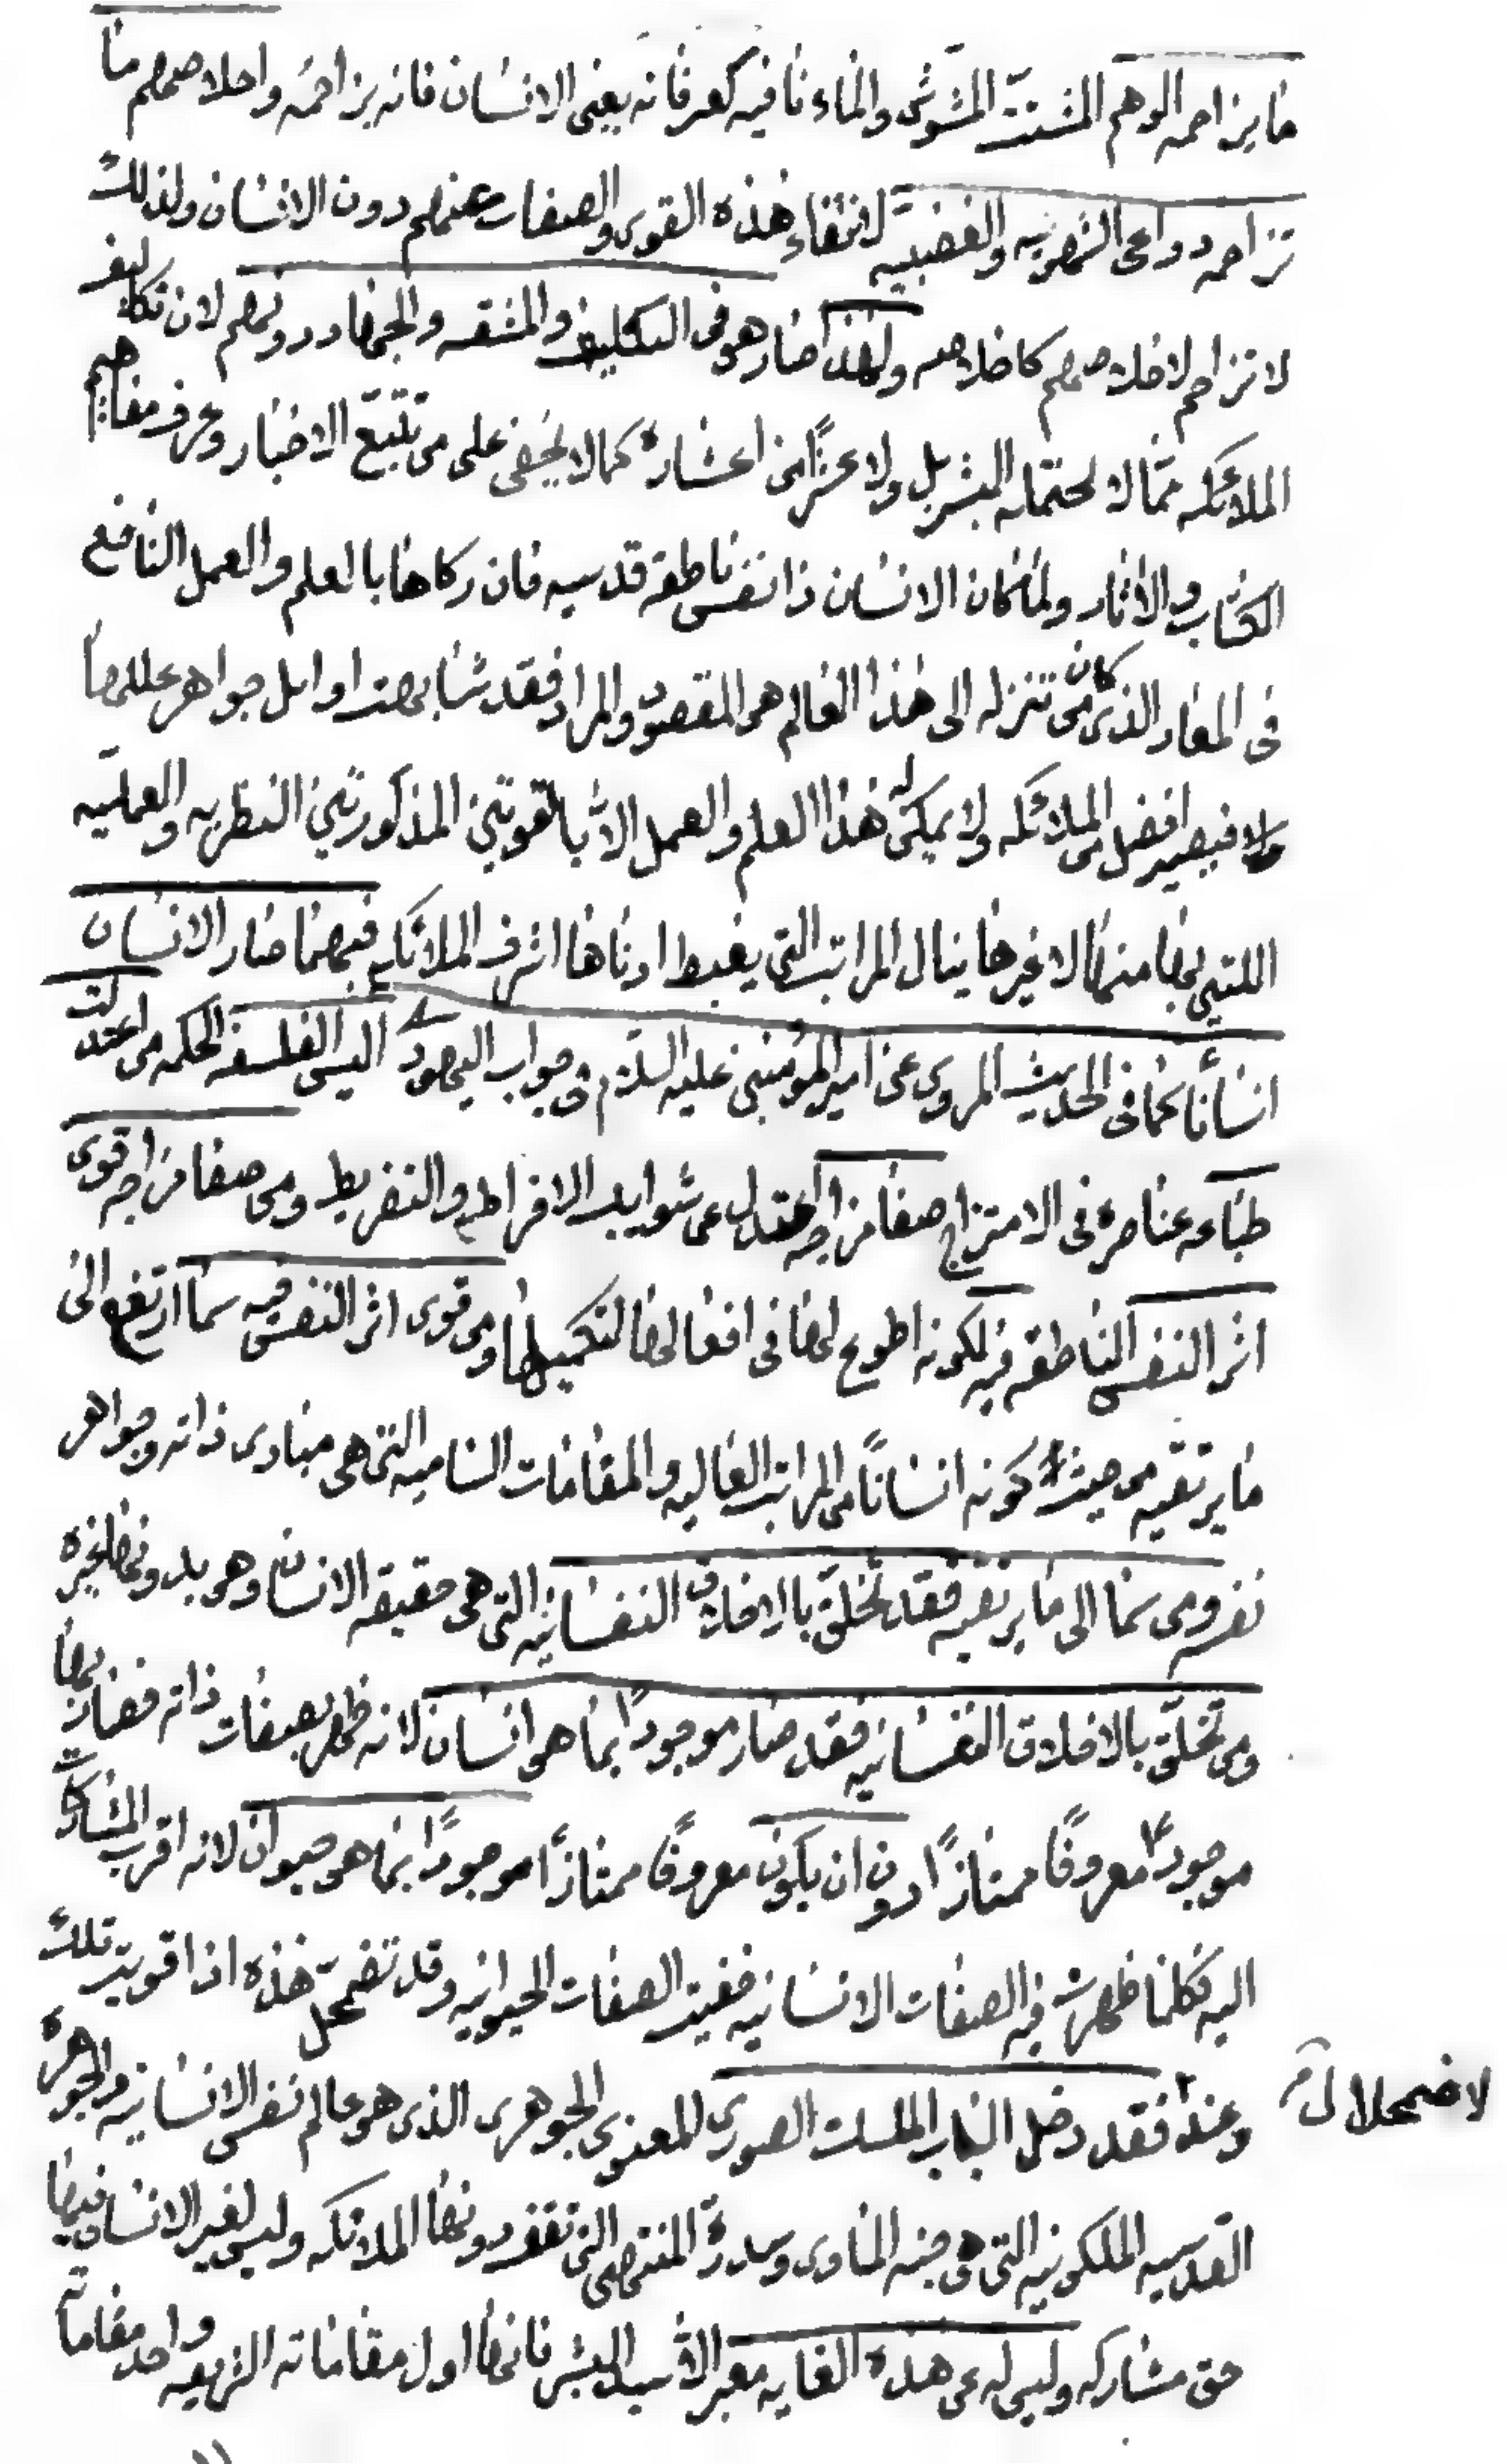 ما يزاحمه الوهم المشتت المشوش والماء نافيه كعرفانه يعنى الانسان فانه يزاحمه واخلاصهم ما
تزاحمه دواعى الشهويه والغضبيه لانتفاء هذه القوى والصفات عنهم دون الانسان ولذلك
لا تزاحم لاخلاصهم كاخلاصه ولهذا صار هو فى التكليف والمشقه والجهاد دونهم لان تكاليف
الملائكه مما لا تحتمله البشر بل ولا عشرًا من اعشاره كما لا يخفى على من تتبّع الاخبار وعرف مفاهيم
الكتاب والاثار ولما كان الانسان ذا نفس ناطقة قدسيه فان زكاها بالعلم والعمل النافع
فى المعاد الذى كان من تنزله الى هذا العالم هو المقصود والمراد فقد شابهت اوايل جواهر عللها
فيصير افضل من الملائكه ولا يمكن له هذا العلم والعمل الا بالقوتين المذكورتين النظريه والعمليه
اللتين بهما منها لا غيرها ينال المراتب التى يغبط ادناها اشرف الملائكه فبهما صار الانسان
انسانًا كما فى الحديث المروى عن امير المؤمنين عليه السلام فى جواب اليهود اليس الفلسفه الحكمه من اعتدلت
طباعه عناصره فى الامتزاج صفا مزاجه اعتدل عن شوايب الافراط والتفريط ومن صفا مزاجه قوى
اثر النفس الناطقه فيه لكونه اطوع لها فى افعالها لتكميلها ومن قوى اثر النفس فيه سما ارتفع الى
ما يرتقيه من حيث كونه انسانًا من المراتب العاليه والمقامات الساميه التى هى مبادى ذاته وجواهر
نفره ومن سما الى ما يرتقيه فقد تخلّق بالاخلاق النفسانيه التى هى حقيقه الانسان وهو بدونها غيره
ومن تخلّق بالاخلاق النفسانيه فقد صار موجودًا بما هو انسان لانه ظهر بصفات ذاته فصار بها
موجودًا معروفًا ممتازًا دون ان يكون معروفًا ممتازًا موجودًا بما هو حيوان لانه اقرب المشاركات
اليه فكلما ظهرت فيه الصفات الانسانيه خفيت الصفات الحيوانيه وقد تضمحل هذه اذا قويت تلك
لاضمحلال
فقد دخل الباب الملكى الصورى المعنوى الجوهرى الذى هو عالم نفس الانسانيه والجوهره
القدسيه الملكوتيه التى هى جنه الماوى وسدرة المنتهى التى تقف دونها الملائكه وليس لغير الانسان فيها
حق مشاركه وليس له عن هذه الغايه معبر الا سيد البشر فانها اول مقاماته الشريفه واحد مقاماته